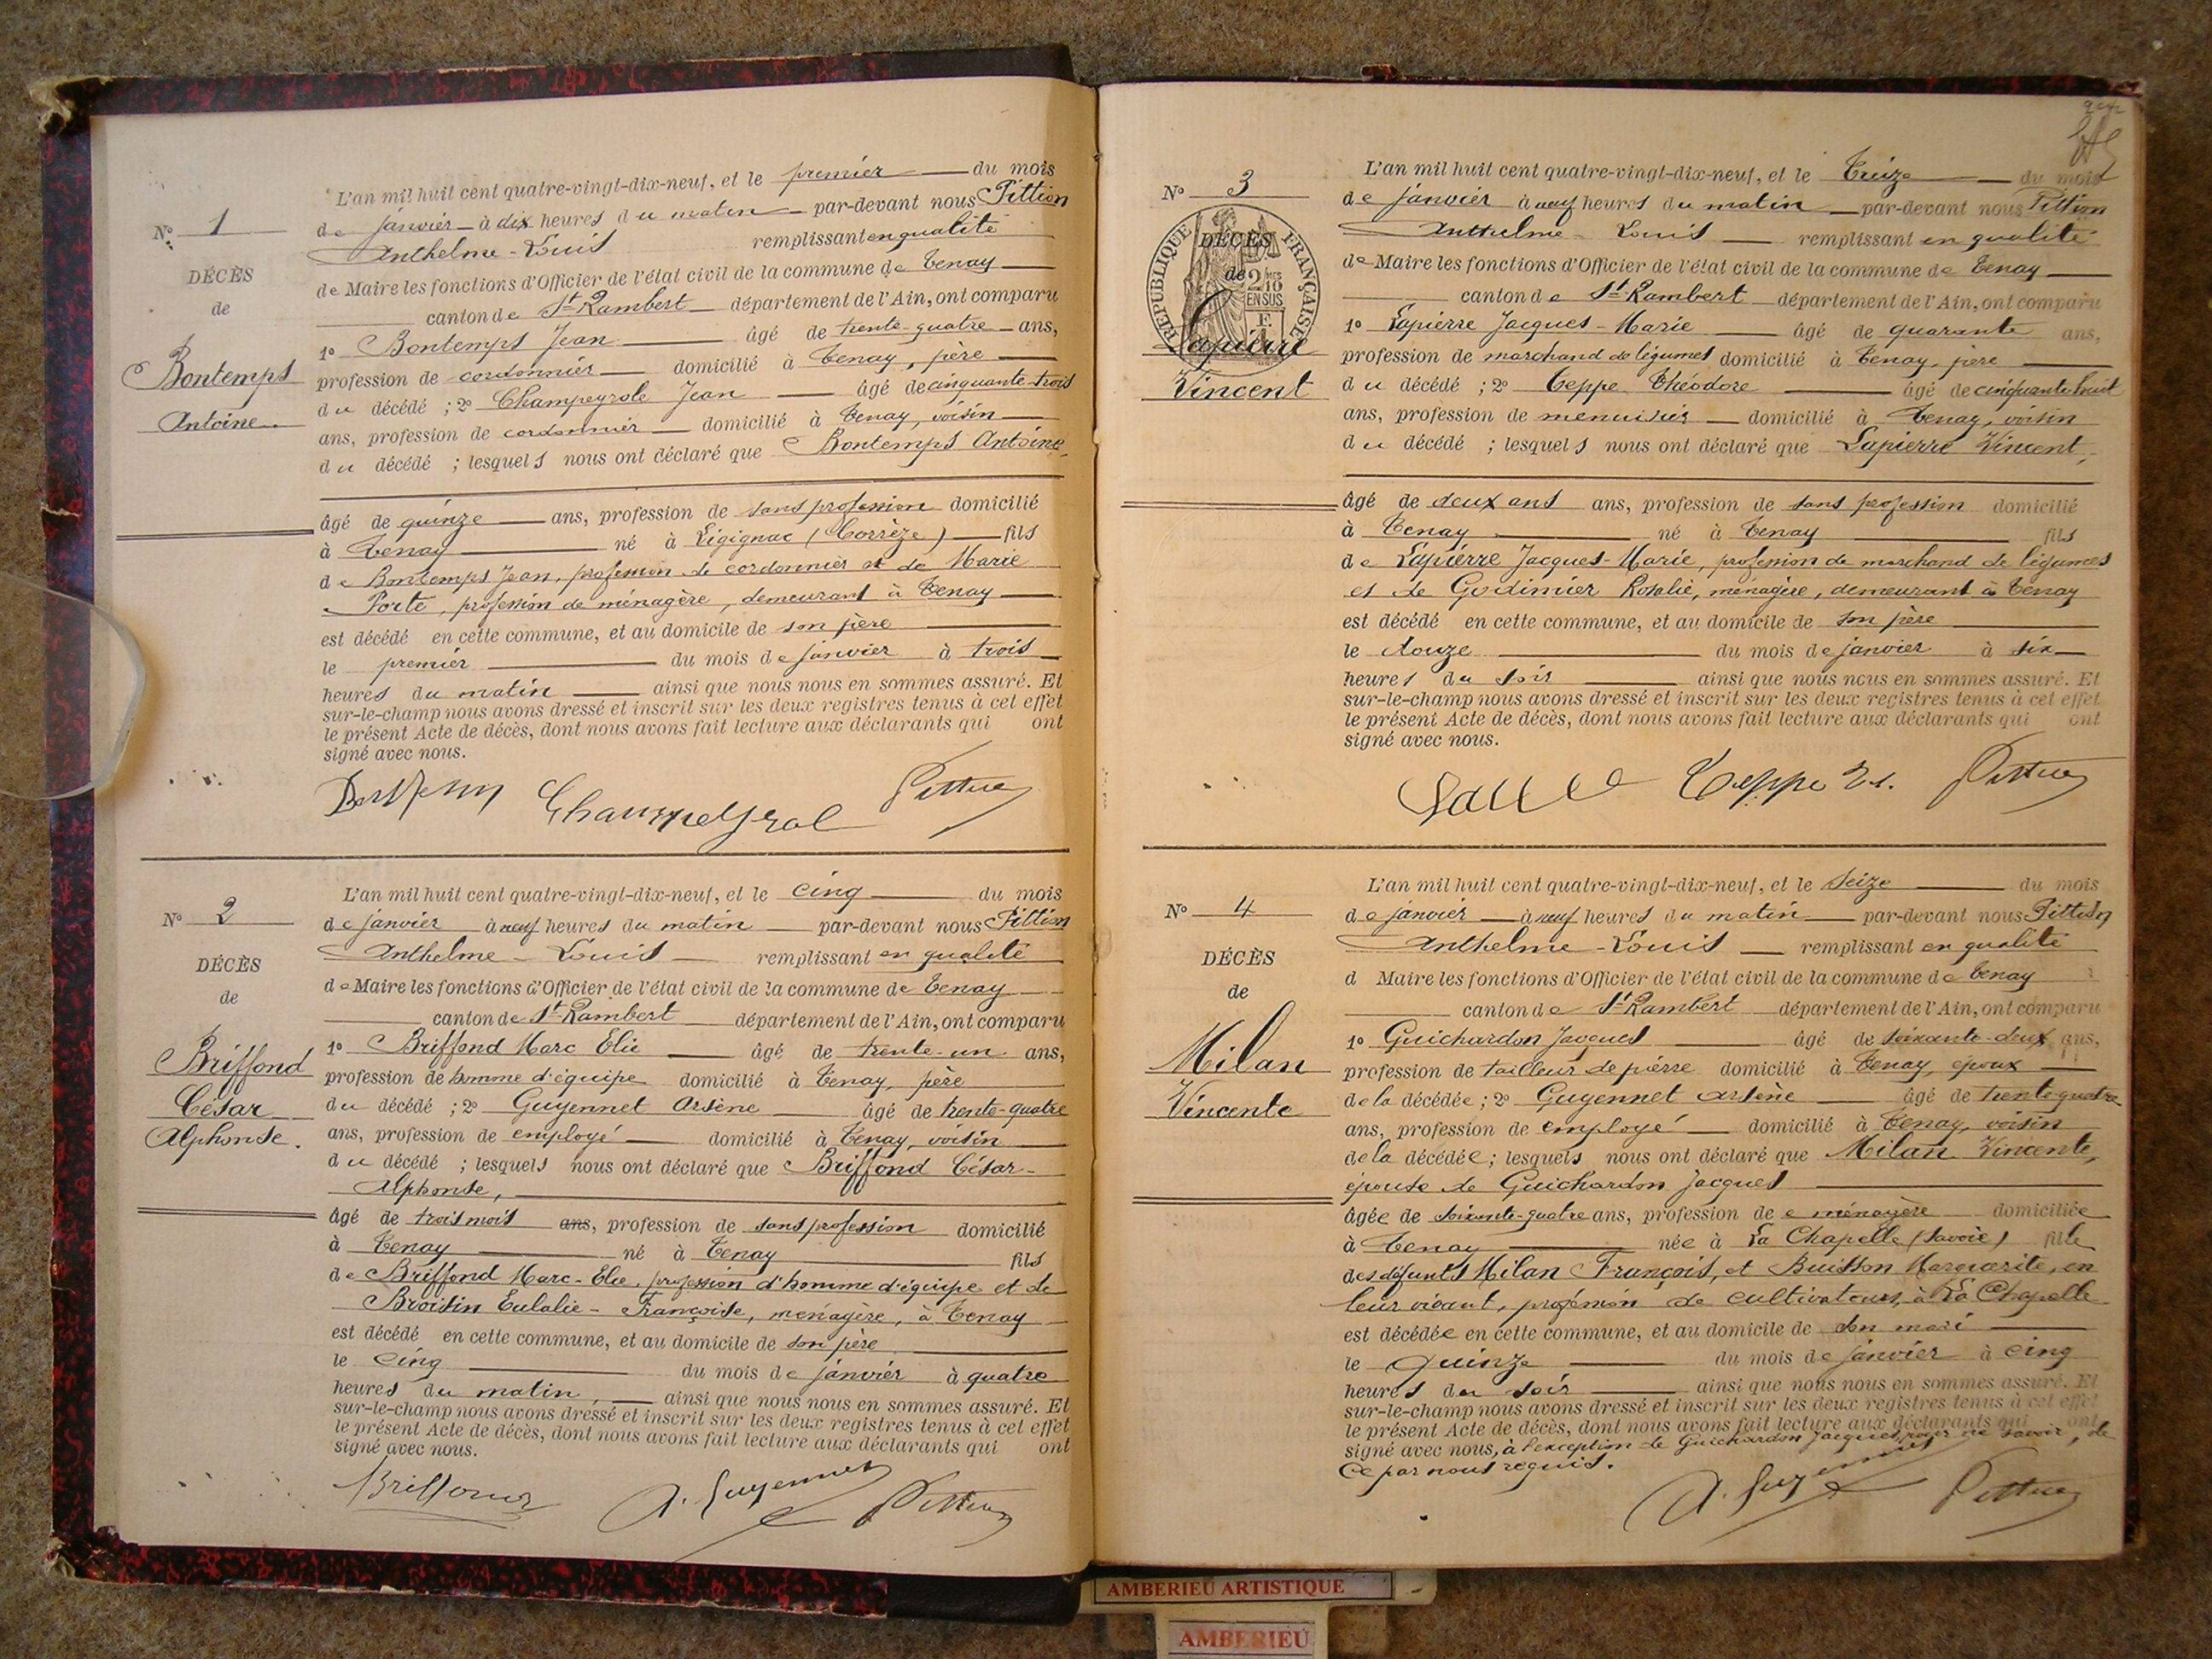 N° 1
DÉCÈS
de
Bontemps
Antoine
L'an mil huit cent quatre-vingt-dix-neuf, et le premier du mois
de janvier à dix heures du matin par-devant nous Pittion
Anthelme-Louis remplissant en qualité
de Maire les fonctions d'Officier de l'état civil de la commune de Tenay
canton de St-Rambert département de l'Ain, ont comparu
1° Bontemps Jean âgé de trente-quatre ans,
profession de cordonnier domicilié à Tenay, père
du décédé ; 2° Champeyrole Jean âgé de cinquante-trois
ans, profession de cordonnier domicilié à Tenay, voisin
du décédé ; lesquels nous ont déclaré que Bontemps Antoine,
âgé de quinze ans, profession de sans profession domicilié
à Tenay né à Ligignac (Corrèze) fils
de Bontemps Jean, profession de cordonnier et de Marie
Porte, profession de ménagère, demeurant à Tenay
est décédé en cette commune, et au domicile de son père
le premier du mois de janvier à trois
heures du matin ainsi que nous nous en sommes assuré. Et
sur-le-champ nous avons dressé et inscrit sur les deux registres tenus à cet effet
le présent Acte de décès, dont nous avons fait lecture aux déclarants qui ont
signé avec nous.
Champeyrol Pittion
N° 2
DÉCÈS
de
Briffond
César
Alphonse.
L'an mil huit cent quatre-vingt-dix-neuf, et le cinq du mois
de janvier à neuf heures du matin par-devant nous Pittion
Anthelme-Louis remplissant en qualité
de Maire les fonctions d'Officier de l'état civil de la commune de Tenay
canton de St-Rambert département de l'Ain, ont comparu
1° Briffond Marc Elie âgé de trente-un ans,
profession de homme d'équipe domicilié à Tenay, père
du décédé ; 2° Guyennet Arsène âgé de trente-quatre
ans, profession de employé domicilié à Tenay, voisin
du décédé ; lesquels nous ont déclaré que Briffond César-
Alphonse,
âgé de trois mois ans, profession de sans profession domicilié
à Tenay né à Tenay fils
de Briffond Marc-Elie, profession d'homme d'équipe et de
Broisin Eulalie-Françoise, ménagère, à Tenay
est décédé en cette commune, et au domicile de son père
le cinq du mois de janvier à quatre
heures du matin, ainsi que nous nous en sommes assuré. Et
sur-le-champ nous avons dressé et inscrit sur les deux registres tenus à cet effet
le présent Acte de décès, dont nous avons fait lecture aux déclarants qui ont
signé avec nous.
Briffond A. Guyennet Pittion
N° 3
RÉPUBLIQUE FRANÇAISE
2/10 EN SUS
DÉCÈS
de
Lapierre
Vincent
L'an mil huit cent quatre-vingt-dix-neuf, et le treize du mois
de janvier à neuf heures du matin par-devant nous Pittion
Anthelme-Louis remplissant en qualité
de Maire les fonctions d'Officier de l'état civil de la commune de Tenay
canton de St-Rambert département de l'Ain, ont comparu
1° Lapierre Jacques-Marie âgé de quarante ans,
profession de marchand de légumes domicilié à Tenay, père
du décédé ; 2° Teppe Théodore âgé de cinquante huit
ans, profession de menuisier domicilié à Tenay, voisin
du décédé ; lesquels nous ont déclaré que Lapierre Vincent,
âgé de deux ans ans, profession de sans profession domicilié
à Tenay né à Tenay fils
de Lapierre Jacques-Marie, profession de marchand de légumes
et de Godinier Rosalie, ménagère, demeurant à Tenay
est décédé en cette commune, et au domicile de son père
le douze du mois de janvier à six
heures du soir ainsi que nous nous en sommes assuré. Et
sur-le-champ nous avons dressé et inscrit sur les deux registres tenus à cet effet
le présent Acte de décès, dont nous avons fait lecture aux déclarants qui ont
signé avec nous.
Teppe Pittion
N° 4
DÉCÈS
de
Milan
Vincente
L'an mil huit cent quatre-vingt-dix-neuf, et le seize du mois
de janvier à neuf heures du matin par-devant nous Pittion
Anthelme-Louis remplissant en qualité
d Maire les fonctions d'Officier de l'état civil de la commune de Tenay
canton de St-Rambert département de l'Ain, ont comparu
1° Guichardon Jacques âgé de soixante-deux ans,
profession de tailleur de pierre domicilié à Tenay, époux
de la décédée ; 2° Guyennet Arsène âgé de trente quatre
ans, profession de employé domicilié à Tenay, voisin
de la décédée ; lesquels nous ont déclaré que Milan Vincente,
épouse de Guichardon Jacques
âgée de soixante-quatre ans, profession de ménagère domiciliée
à Tenay née à La Chapelle (Savoie) fille
des défunts Milan François, et Buisson Marguerite, en
leur vivant, profession de cultivateurs, à La Chapelle
est décédée en cette commune, et au domicile de son mari
le quinze du mois de janvier à cinq
heures du soir ainsi que nous nous en sommes assuré. Et
sur-le-champ nous avons dressé et inscrit sur les deux registres tenus à cet effet
le présent Acte de décès, dont nous avons fait lecture aux déclarants qui ont
signé avec nous, à l'exception de Guichardon Jacques, pour ne savoir, de
ce par nous requis.
A. Guyennet Pittion
AMBERIEU ARTISTIQUE
AMBERIEU